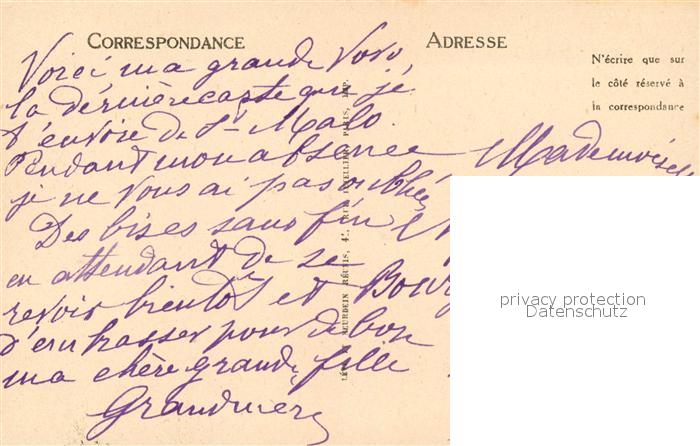 CORRESPONDANCE
ADRESSE
N'écrire que sur
le côté réservé à
la correspondance
Voici ma grande Vovo,
la dernière carte que je
t'envoie de St-Malo.
Pendant mon absence
je ne vous ai pas oubliée,
Des bises sans fin
en attendant de se
revoir bientôt et
d'embrasser pour de bon
ma chère grande fille
Grandmère
Mademoisell
Bourg
LÉVY ET NEURDEIN RÉUNIS, 44, RUE LETELLIER, PARIS, IMP.
privacy protection
Datenschutz